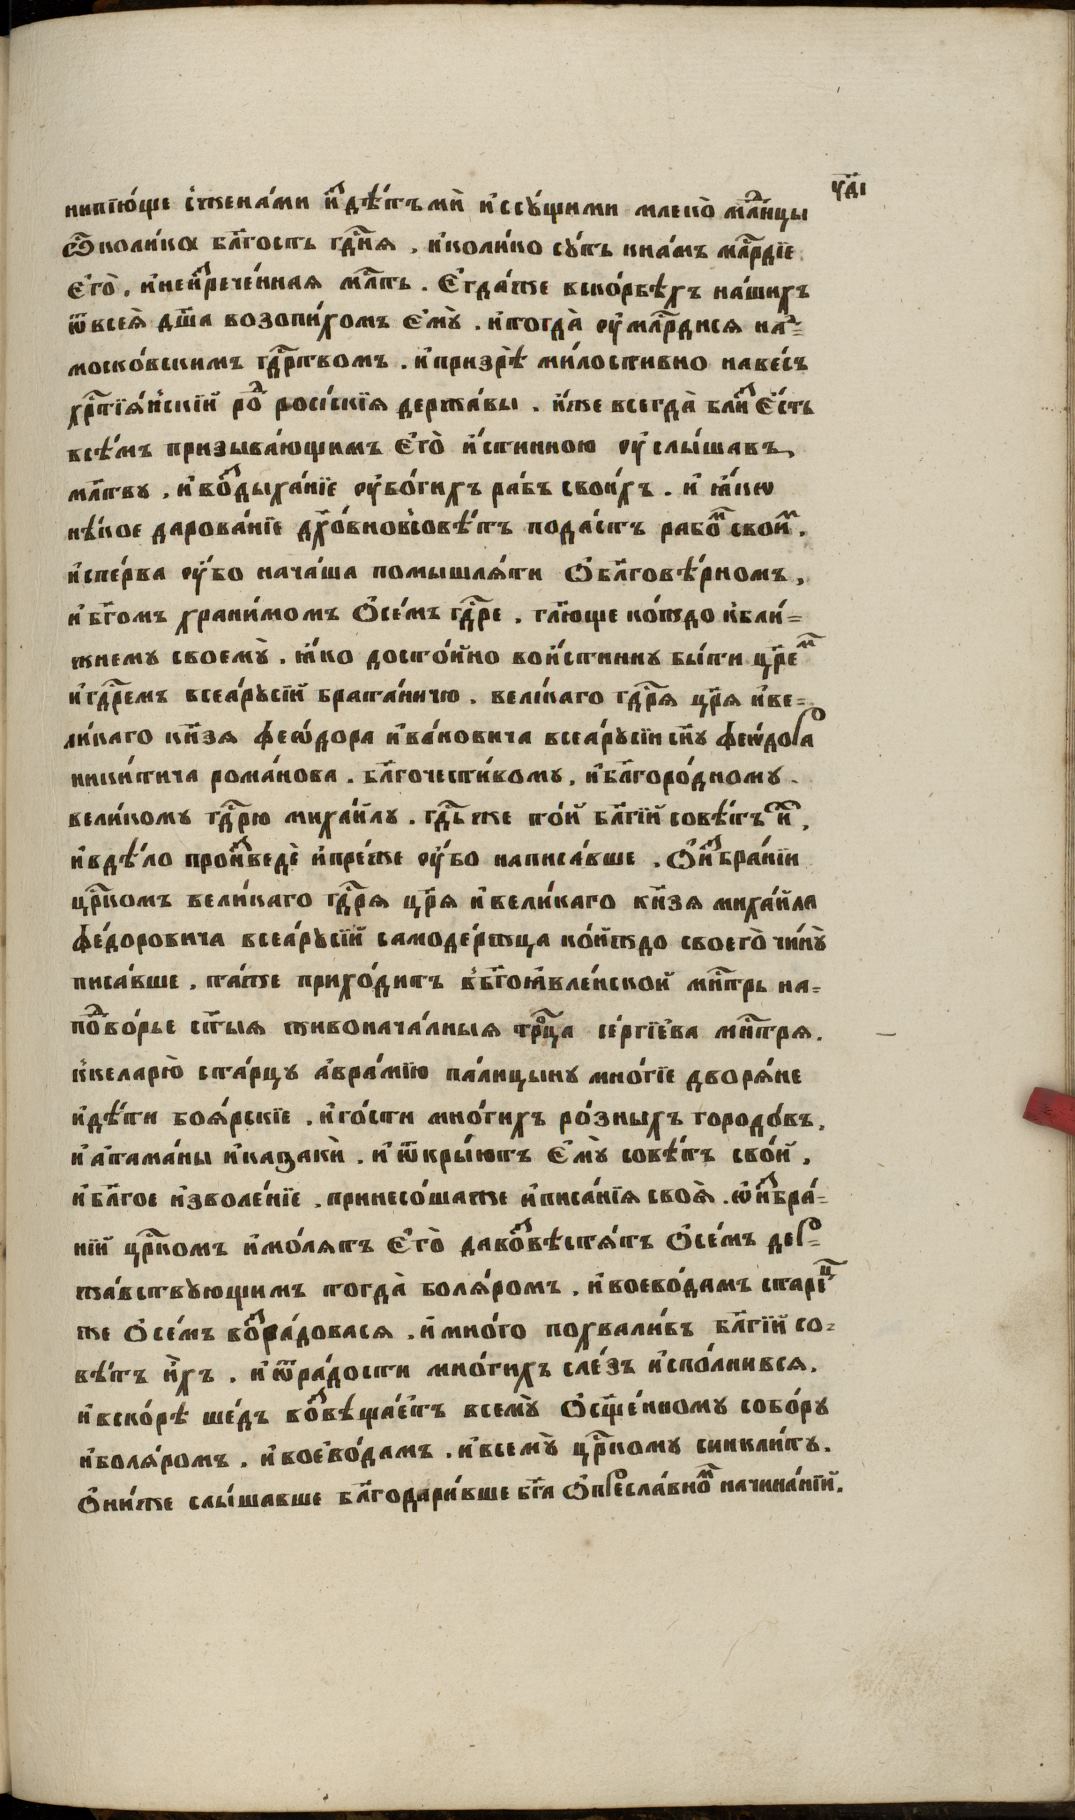 уд҃і
нипїю́ще сженами и҆з̾дѣ́тъмѝ и҆ссꙋ́щими млекѡ̀ млⷣнцы
ѽколика бл҃гость гдⷭ҇нꙗ , и҆колико сꙋ́ть кна́мъ млⷭ҇рдїе
є҆гѡ̀ , и҆неиз̾рече́нная млⷭ҇ть . є҆гда́же вско́рбѣхъ на́шихъ
ѿвсеѧ̀ дш҃а возопи́хомъ є҆мꙋ̀ . и҆тогда̀ ᲂу҆млⷭ҇рдисѧ на-
моско́вскимъ гдⷭ҇рствомъ . и҆призрѣ̀ ми́лостивно наве́сь
хрⷭ҇тїѧ́нскїй роⷣ росі́скїѧ держа́вы . и҆́же всегда̀ блиⷥ є҆́сть
всѣ́мъ призыва́ющимъ є҆гѡ̀ и҆́стинною ᲂу҆слы́шавъ
мл҃тву , и҆воⷥдыха́нїе ᲂу҆бо́гихъ ра́бъ свои́хъ . и҆ ꙗ҆́кѡ
нѣ́кое дарова́нїе дꙋхо́вновсовѣ́тъ пода́стъ рабоⷨ своиⷨ .
и҆спе́рва ᲂу҆́бо нача́ша помышлѧ́ти ѡ҆бл҃говѣ́рномъ ,
и҆бг҃омъ храни́момъ ѡ҆се́мъ гдⷭ҇ре , гл҃юще ко́ждо и҆бли́-
жнемꙋ своемꙋ̀ . ꙗ҆́ко досто́йно вои́стиннꙋ бы́ти цр҃еⷨ
и҆гдⷭ҇ремъ всеа́рꙋсїй брата́ничю . вели́каго гдⷭ҇рѧ цр҃ѧ и҆ве-
ли́каго кн҃зѧ феѡ́дора и҆ва́новича всеа́рꙋсїи сн҃ꙋ феѡ́дора
ники́тича рома́нова . бл҃гочести́вомꙋ , и҆бл҃горо́дномꙋ .
вели́комꙋ гдⷭ҇рю миха́йлꙋ . гдⷭ҇ьже то́й бл҃гїй совѣ́тъ иⷯ ,
и҆вдѣ́ло произ̾ведѐ и҆пре́же ᲂу҆́бо написа́вше . ѡ҆из̾бра́нїи
црⷭ҇комъ вели́каго гдⷭ҇рѧ цр҃ѧ и҆вели́каго кн҃зѧ миха́йла
фе́доровича всеа́рꙋсїй самоде́ржца ко́йждо своегѡ̀ чи́нꙋ
писа́вше , та́же прихо́дитъ вбг҃оꙗ҆вле́нской мн҃трь на-
поⷣво́рье ст҃ыѧ живонача́лныѧ трⷪ҇ца се́ргїева мн҃трѧ .
ккеларю̀ ста́рцꙋ а҆вра́мїю па́лицынꙋ мно́гїе дворѧ́не
и҆дѣ́ти боѧ́рскїе , и҆го́сти мно́гихъ ро́зныхъ городо́въ ,
и҆а҆тама́ны и҆казакѝ . и҆ ѿкры́ютъ є҆мꙋ̀ совѣ́тъ сво́й ,
и҆бл҃гое и҆зволе́нїе , принесо́шаже и҆писа́нїѧ своѧ̀ . ѡ҆из̾бра́-
нїй црⷭ҇комъ и҆мо́лѧтъ є҆гѡ̀ давоⷥвѣстѧ́тъ ѡ҆се́мъ дер-
жа́вствꙋющимъ тогда̀ болѧ́ромъ , и҆воево́дамъ стареⷰ
же ѡ҆се́мъ воⷥра́довасѧ , и҆мно́го похвали́въ бл҃гїй со-
вѣ́тъ и҆́хъ . и҆ѿра́дости мно́гихъ сле́зъ и҆спо́лнивсѧ ,
и҆вско́рѣ ше́дъ воⷥвѣща́етъ всемꙋ̀ ѡ҆сщ҃е́нномꙋ собо́рꙋ
и҆болѧ́ромъ , и҆воево́дамъ . и҆всемꙋ̀ црⷭ҇комꙋ синкли́тꙋ .
ѻ҆ни́же слы́шавше бл҃годари́вше бг҃а ѡ҆пресла́вноⷨ начина́нїй .